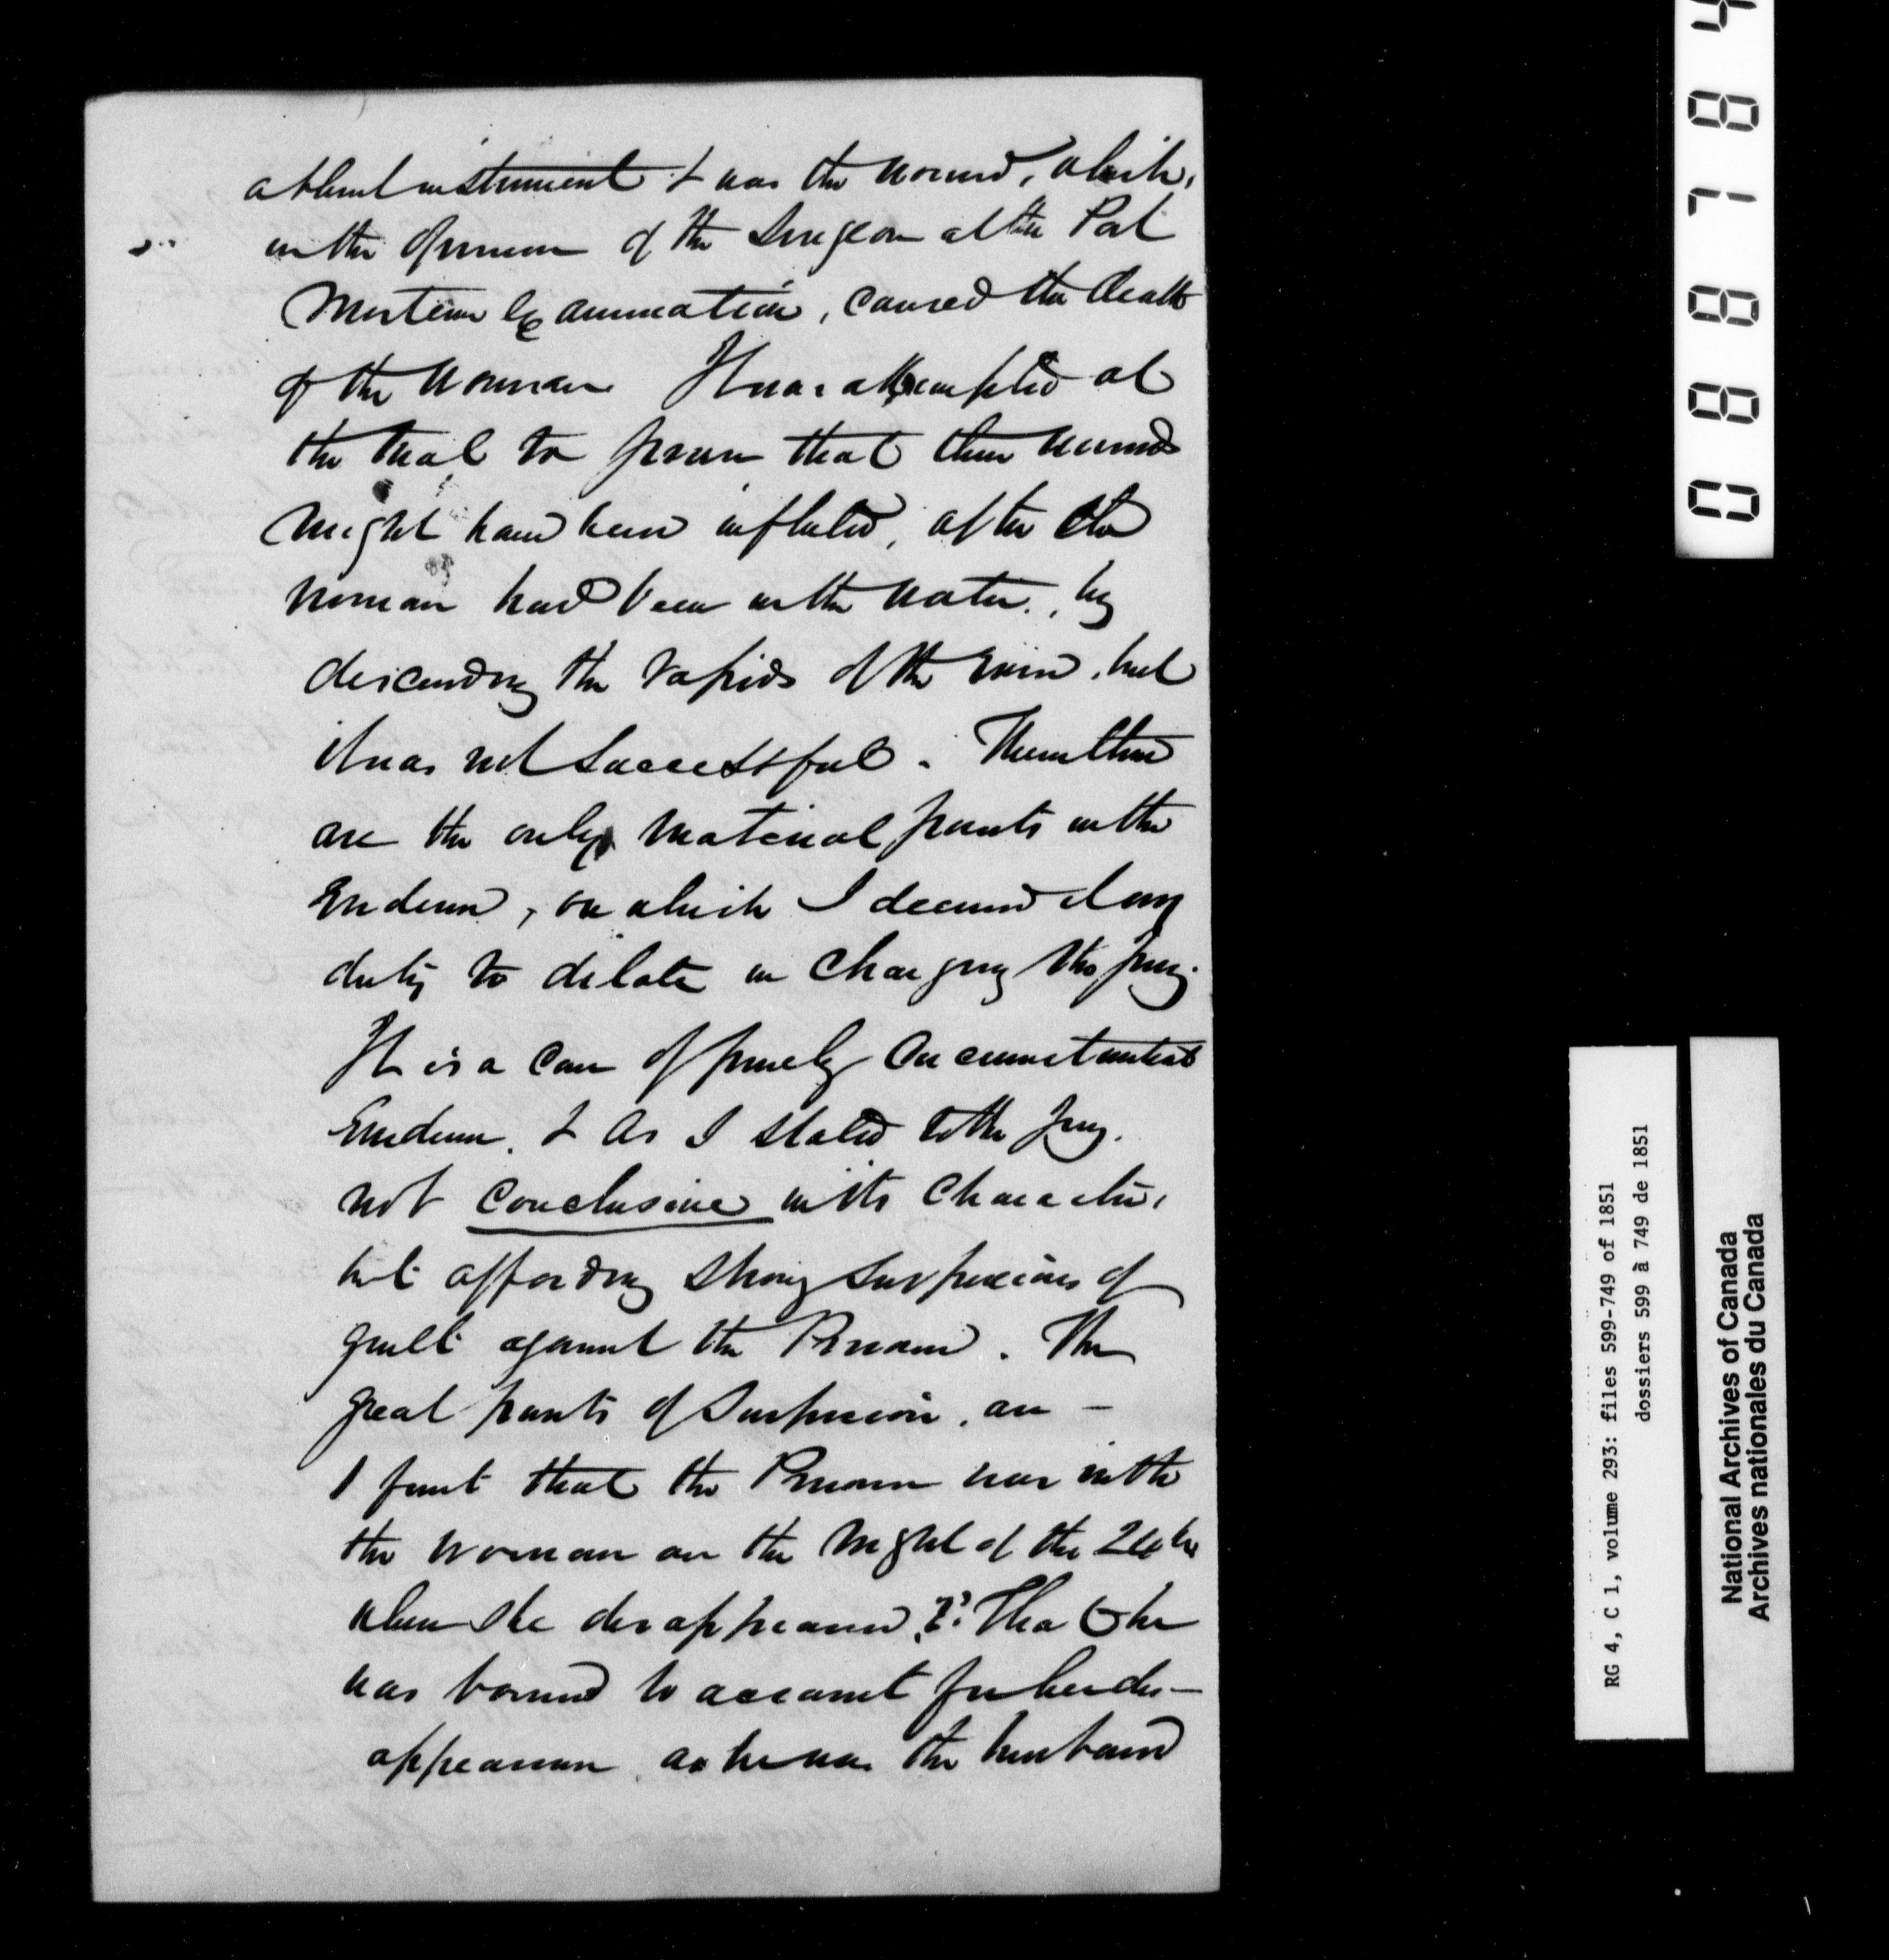 a blunt instrument & was the wound, which,
in the opinion of the Surgeon at the Post
Mortem Examination, caused the death
of the woman It was attempted at
the trial to prove that these wounds
might have been inflicted, after the
woman had been in the water, by
descending the rapids of the river, but
it was not successful. These then
are the only material points in the
Evidence, on which I deemed it my
duty to dilate in charging the jury.
It is a case of purely circumstantial
Evidence, & as I stated to the Jury.
not conclusive in its character,
but affording strong suspicions of
guilt against the Prisoner. The
great points of suspicion, are –
1 first that the Prisoner was with
the woman on the night of the
when she disappeared, 2: That he
was bound to account for her dis–
appearance, as he was the husband
0 8 8 7 8 4
RG 4, C 1, volume 293: files 599-749 of 1851
dossiers 599 à 749 de 1851
National Archives of Canada
Archives nationales du Canada